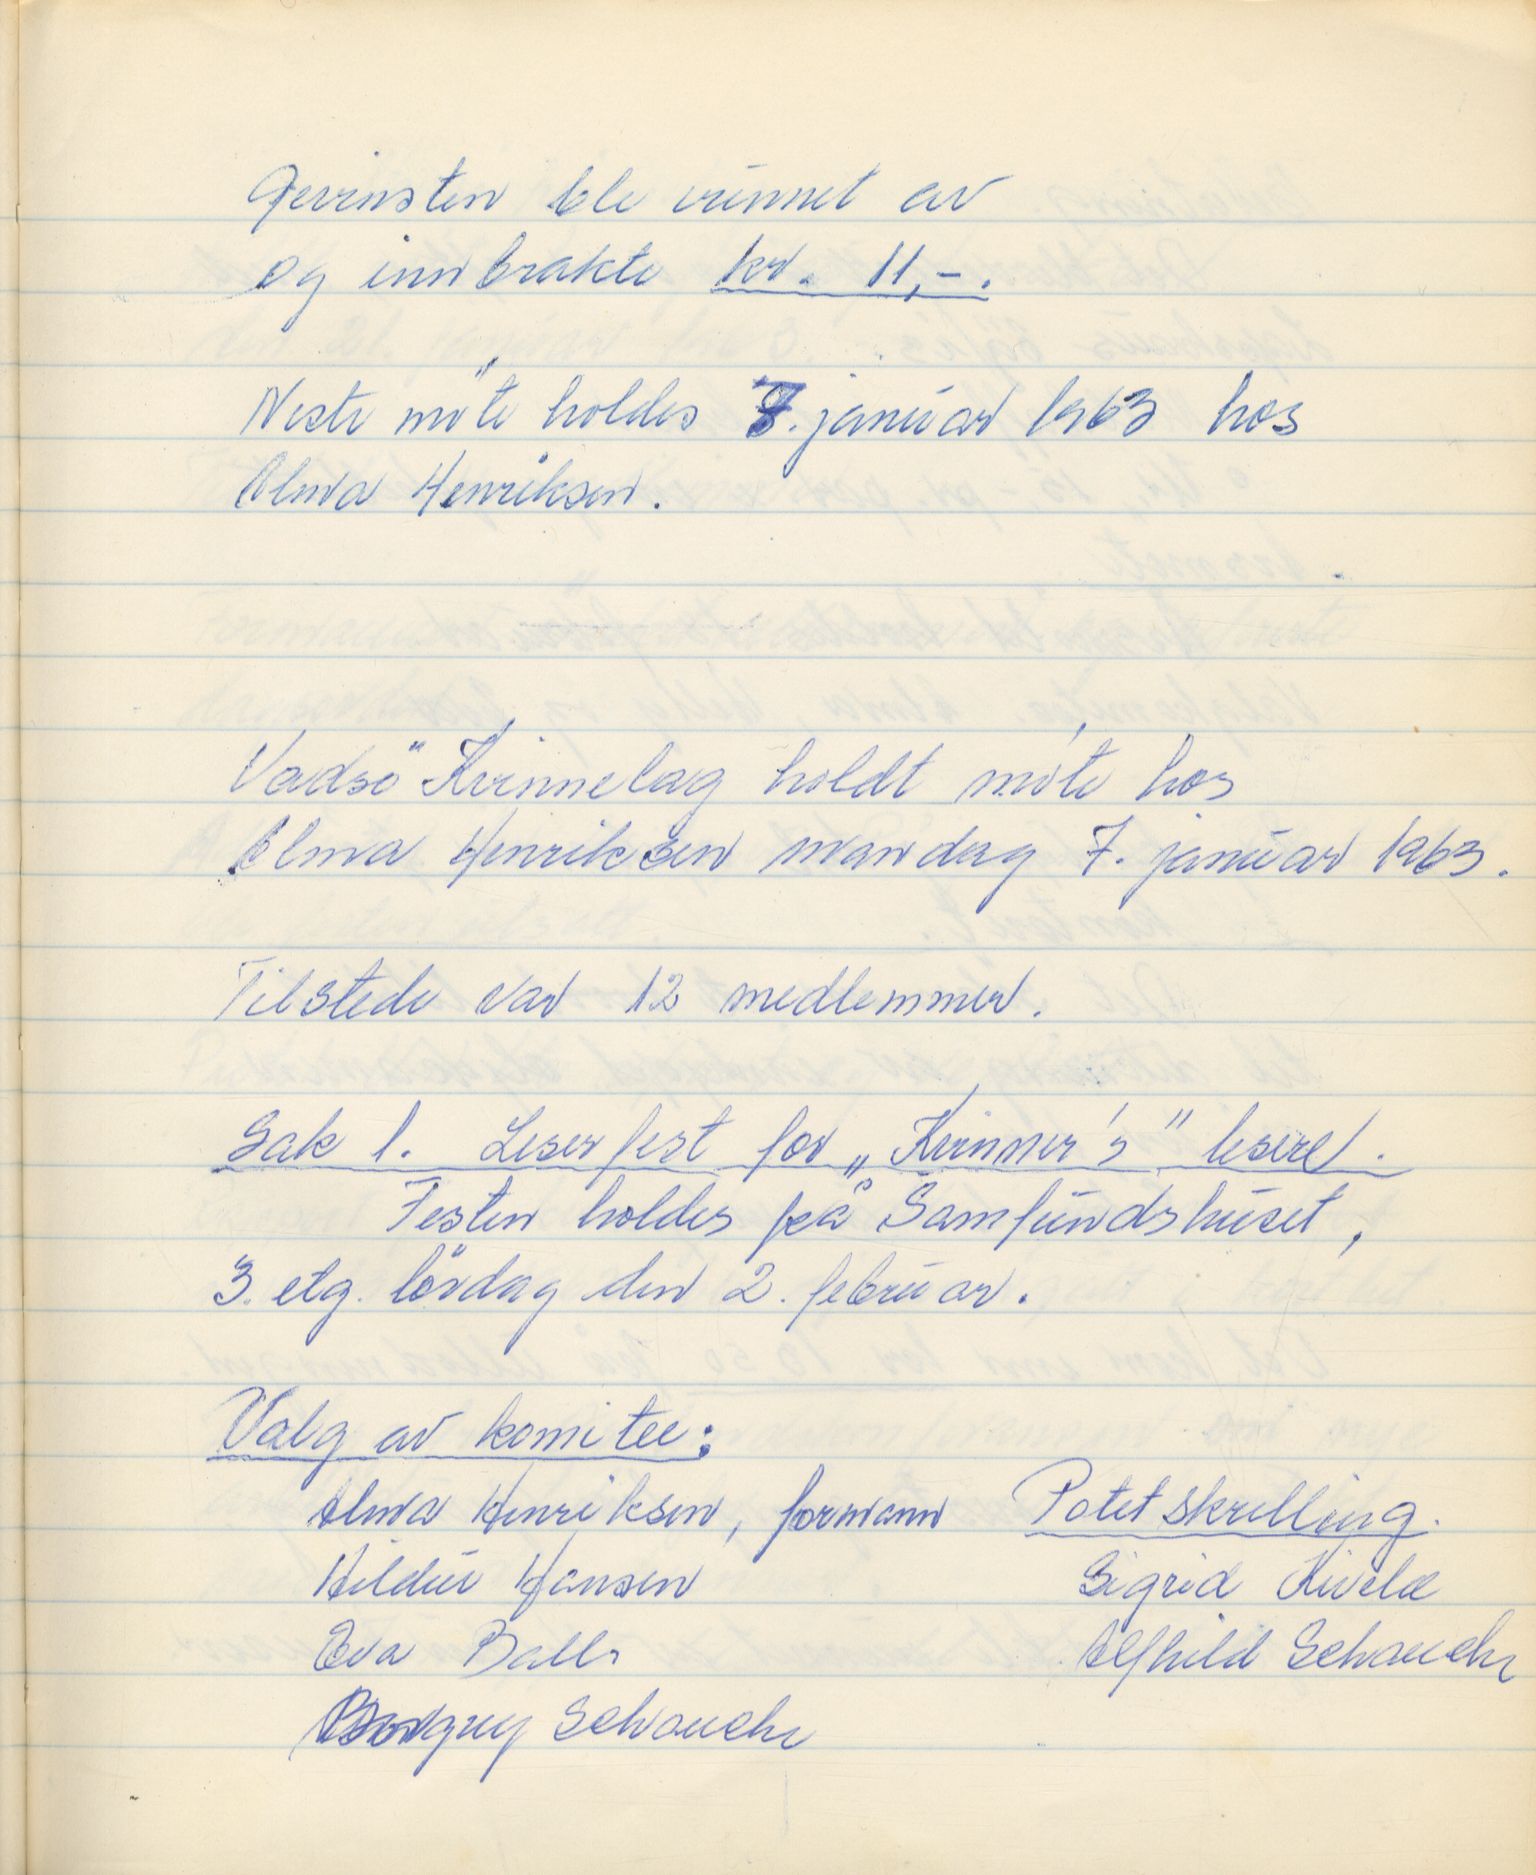 Gevinsten ble vunnet av
og innbrakte kr. 11,-.
Neste möte holdes 7. januar 1963 hos
Alma Henriksen.
Vadsö Kvinnelag holdt möte hos
Alma Henriksen mandag 7. januar 1963.
Tilstede var 12 medlemmer.
Sak 1. Leserfest for „Kvinner's" lesere.
Festen holdes på Samfundshuset,
3. etg. lördag den 2. februar.
Valg av komitee:
Alma Henriksen, formann Potetskrelling.
Hildur Hansen Sigrid Kivelæ
Eva Ballo Alfhild Schanche
Borgny Schanche